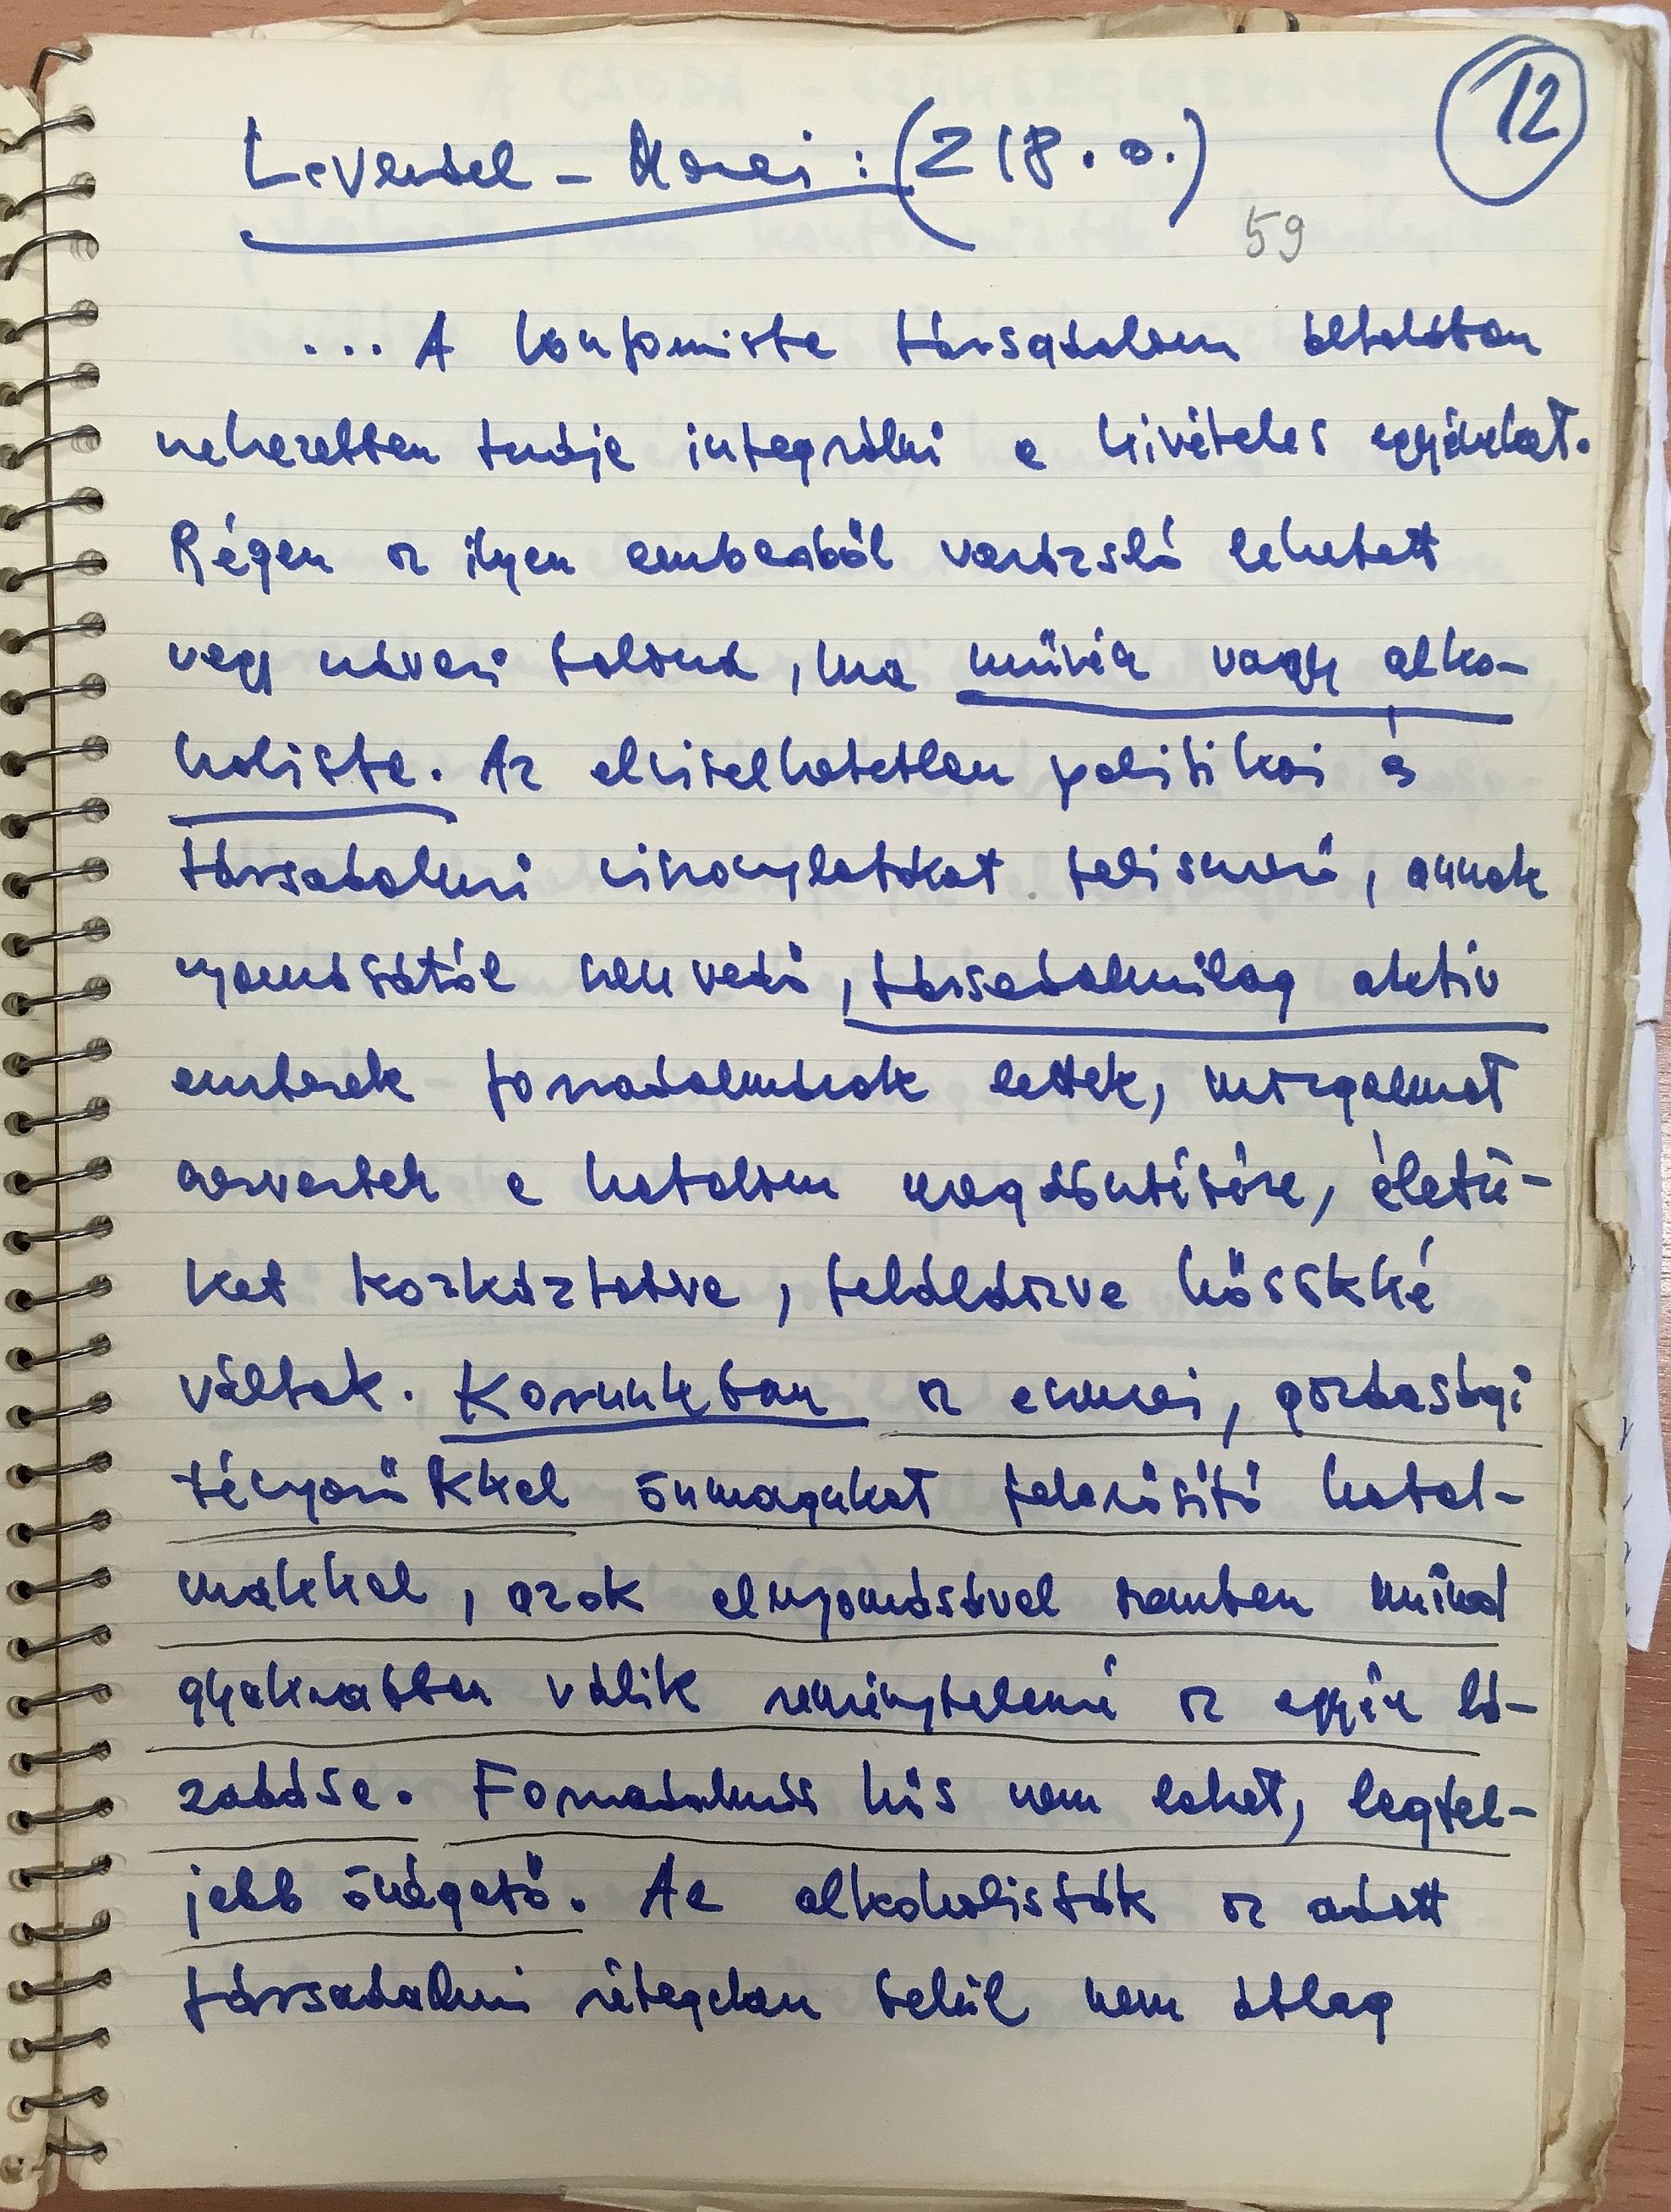 12
Levendel - Mezei : (218. o.)
59
... A konformista társadalom általában
nehezebben tudja integrálni a kivételes egyéneket.
Régen az ilyen emberből varázsló lehetett
vagy udvari bolond, ma művész vagy alko-
holista. Az elviselhetetlen politikai és
társadalmi viszonylatokat felismerő, annak
nyomásától szenvedő, társadalmilag aktív
emberek forradalmárok lettek, mozgalmat
szerveztek a hatalom megdöntésére, életü-
ket kockáztatva, feláldozva hősökké
váltak. Korunkban az elmei, gazdasági
tényezőkkel önmagukat felerősítő hatal-
makkal, azok elnyomásával szemben mind
gyakrabban válik reménytelenné az egyén lá-
zadása. Forradalmár hős nem lehet, legfel-
jebb önégető. Az alkoholisták az adott
társadalmi rétegeken belül nem átlag